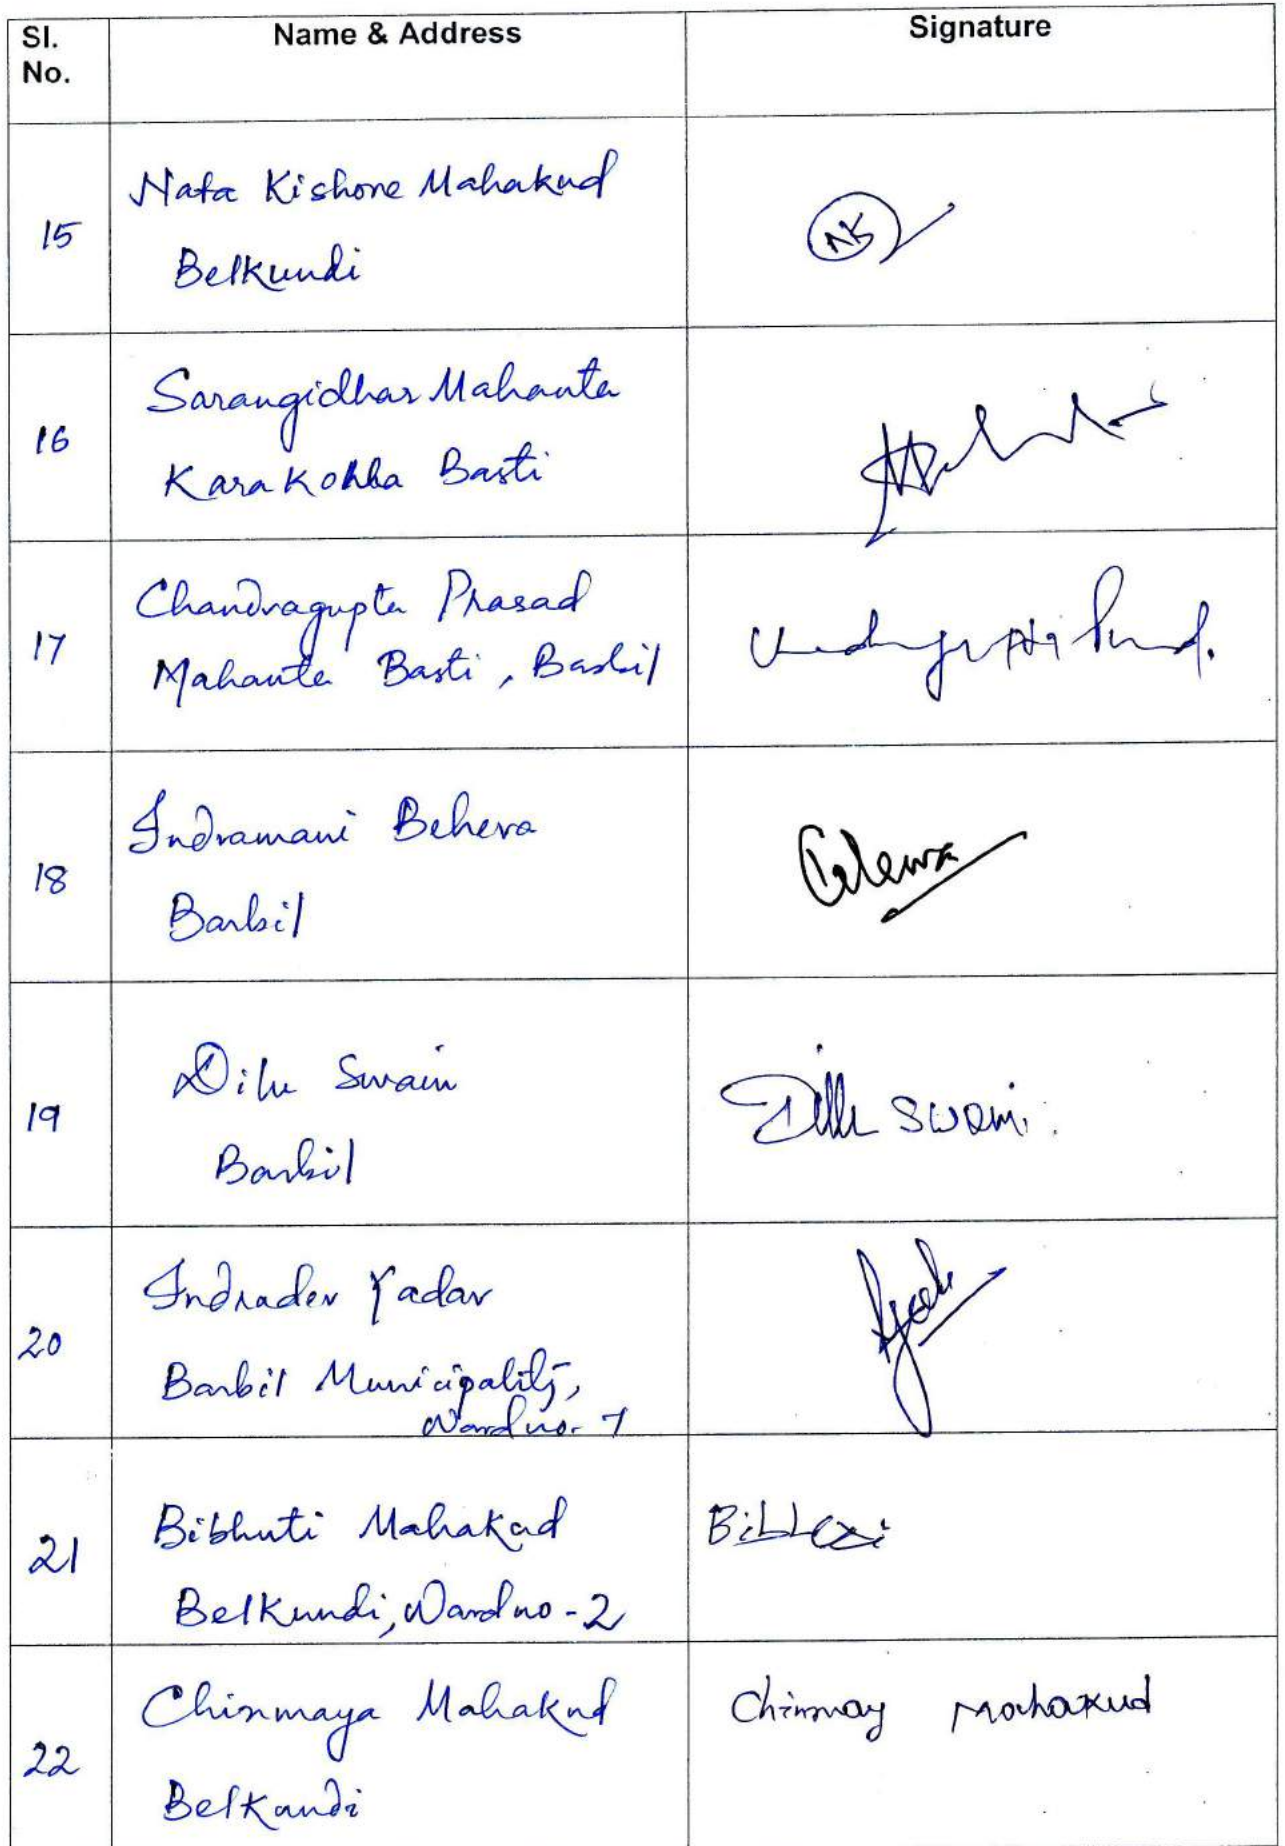 Sl. No. Name & Address Signature
15 Nata Kishore Mahakud
Belkundi
NK
16 Sarangidhar Mahanta
Basti
17 Chandragupta Prasad
Mahanta Basti, Barbil
18 Indramani Behera
Barbil
Behera
19 Dilu Swain
Barbil
Dilu Swain
20 Indradev Yadav
Barbil Municipality,
Ward no. 7
21 Bibhuti Mahakad
Belkundi, Ward no - 2
22 Chinmaya Mahakud
Belkundi
Chinmay Mahakud